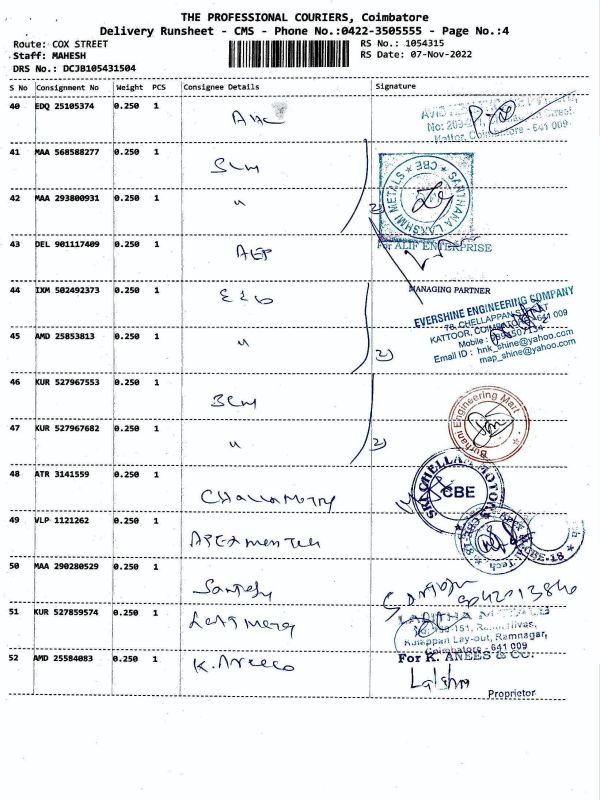 THE PROFESSIONAL COURIERS, Coimbatore
Delivery Runsheet - CMS - Phone No.:0422-3505555 - Page No.:4
Route: COX STREET RS No.: 1054315
Staff: MAHESH RS Date: 07-Nov-2022
DRS No.: DCJB105431504
S No Consignment No Weight PCS Consignee Details Signature
40 EDQ 25105374 0.250 1
Kattor, Coimbatore - 641 009
41 MAA 568588277 0.250 1 SLM
42 MAA 293800931 0.250 1 "
2)
SANTHANA LAKSHMI METALS ★ CBE ★
43 DEL 901117409 0.250 1 AEP
For ALIF ENTERPRISE
44 IXM 502492373 0.250 1
MANAGING PARTNER
EVERSHINE ENGINEERING COMPANY
78, CHELLAPPAN STREET
KATTOOR, COIMBATORE - 641 009
45 AMD 25853813 0.250 1 " 2)
Email ID : hnk_shine@yahoo.com
map_shine@yahoo.com
46 KUR 527967553 0.250 1
Burhani Engineering Mart
47 KUR 527967682 0.250 1 " 2)
48 ATR 3141559 0.250 1
SRI CHELLAM MOTORS
CBE
49 VLP 1121262 0.250 1
CBE-18
50 MAA 290280529 0.250 1 Santosh
Santosh
51 KUR 527859574 0.250 1
LALITHA METALS
Kalappan Lay-out, Ramnagar,
Coimbatore - 641 009
52 AMD 25584083 0.250 1 K. Anees Co
For K. ANEES & CO.
Proprietor